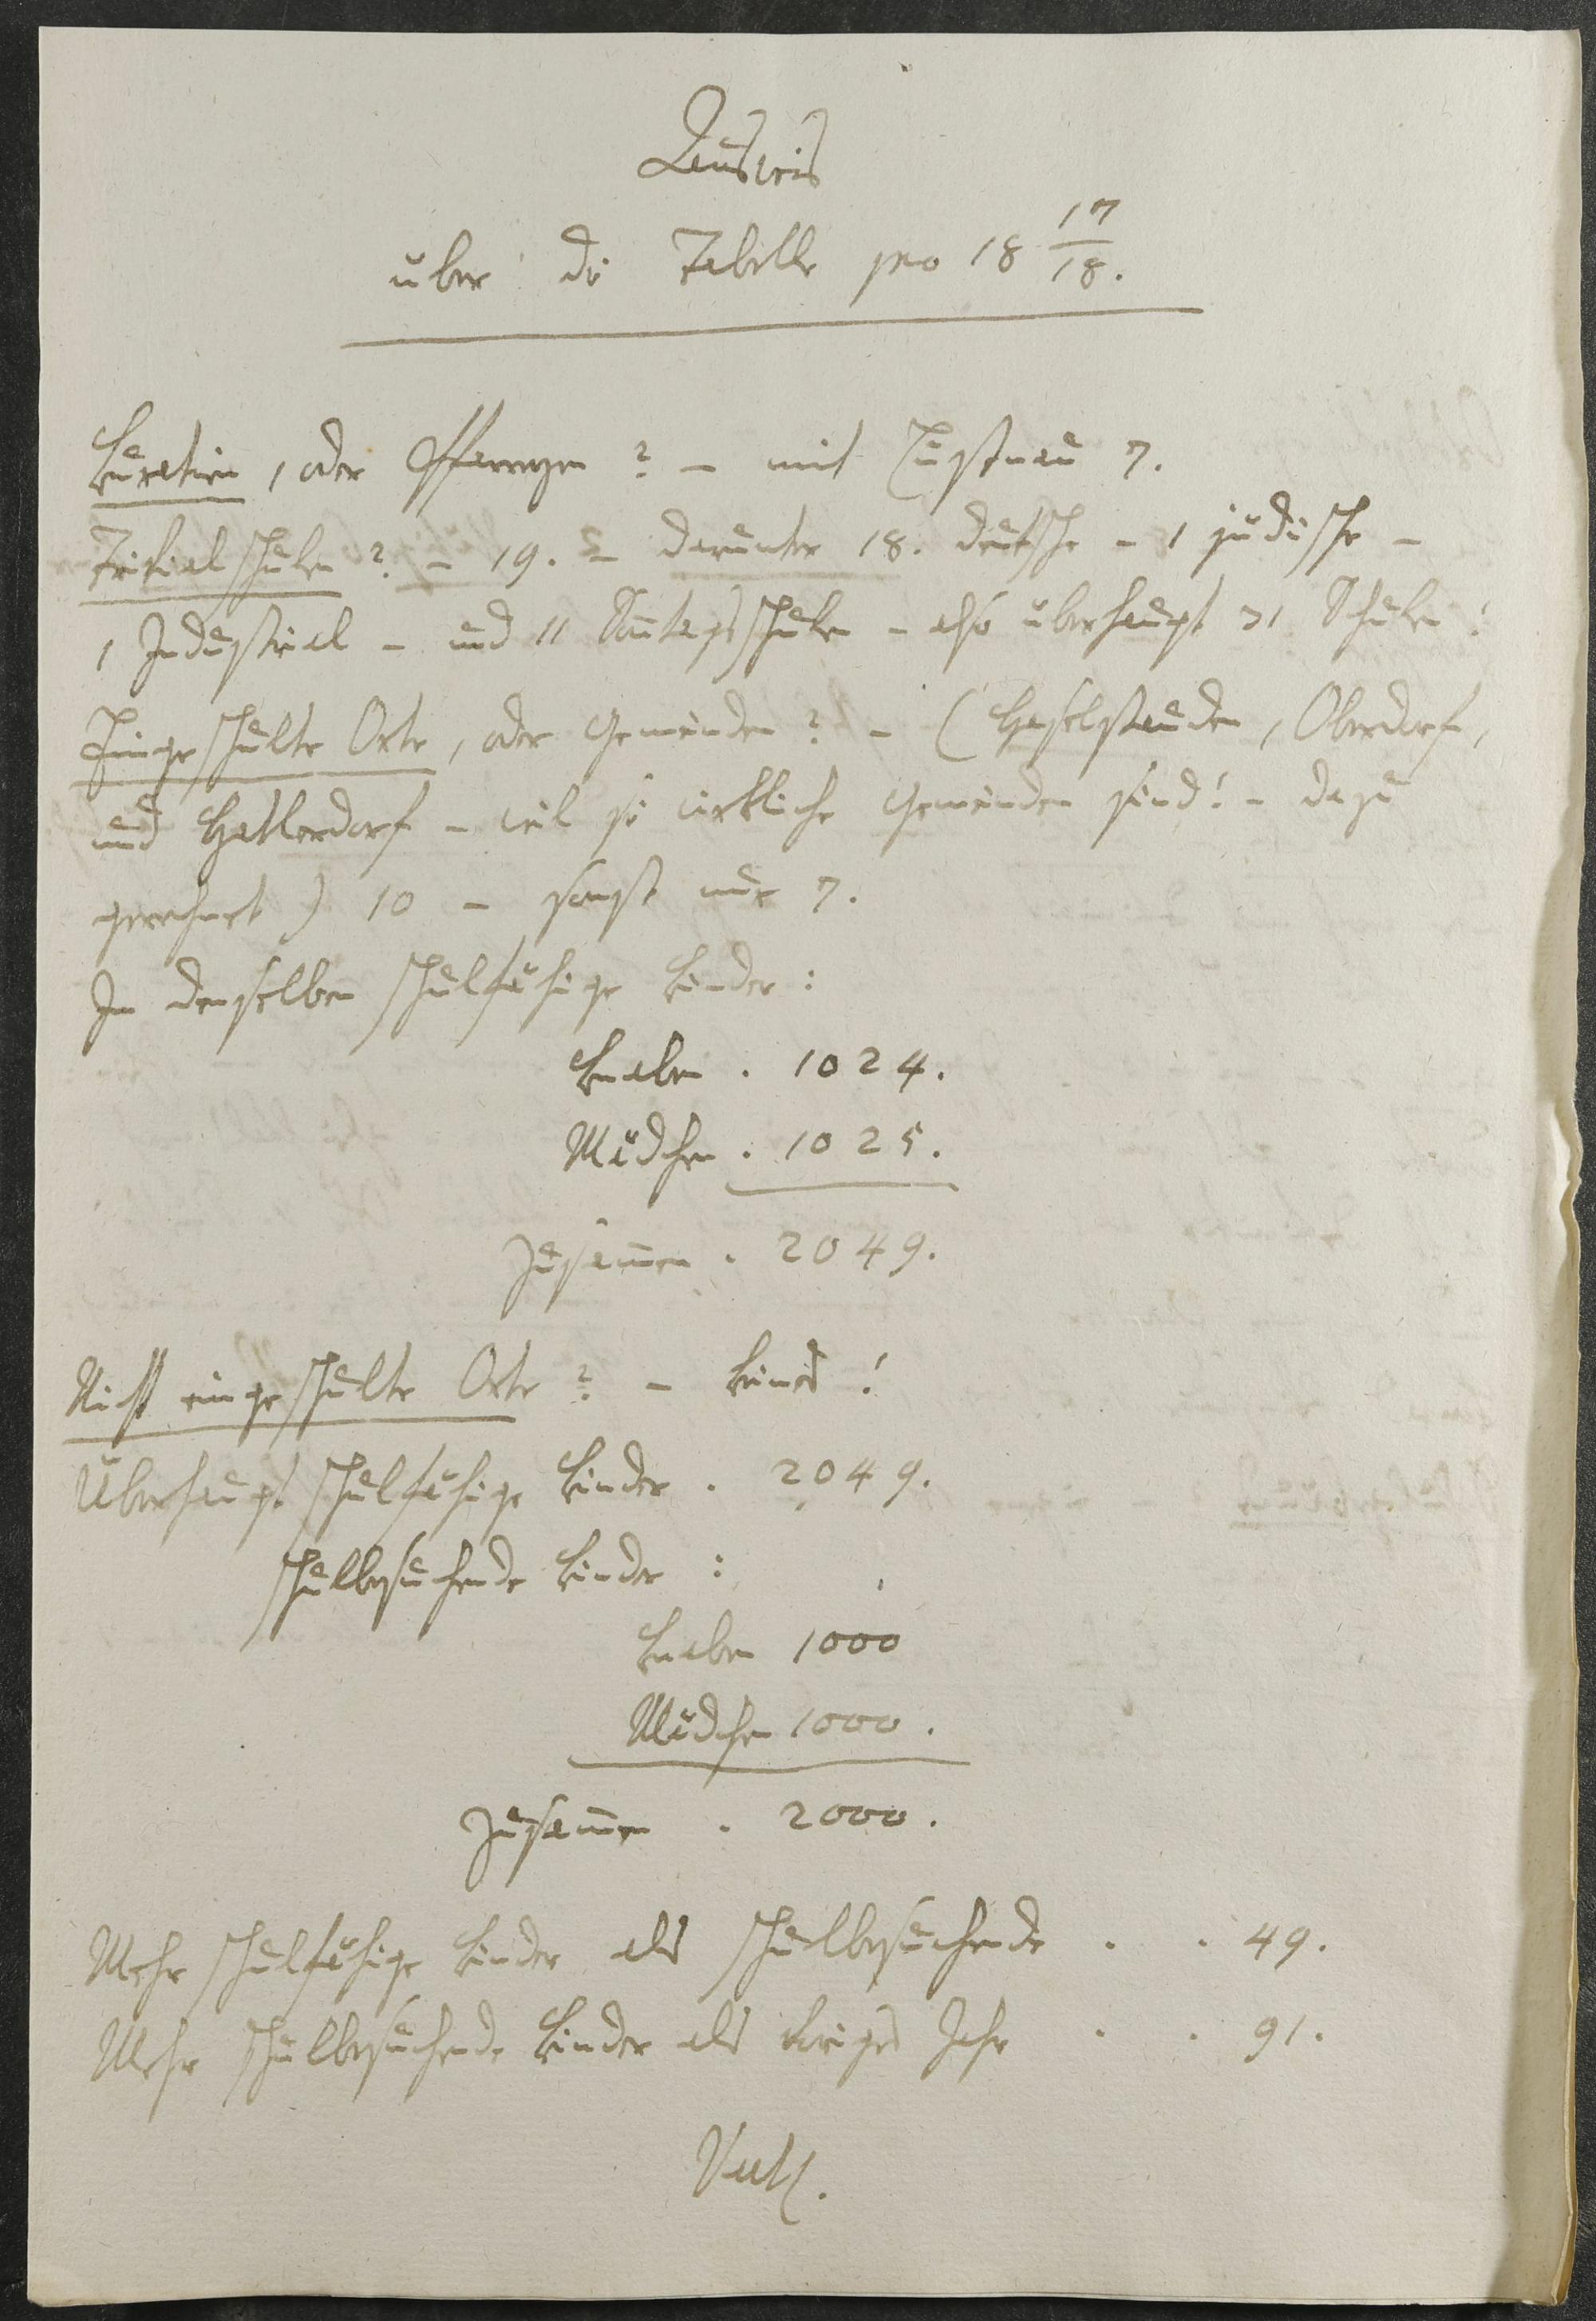 Ausweis
über die Tabelle pro 18 17/18.
Kuratien, oder Pfarreyen? – mit Lustnau 7.
Trivialschulen? – 19. – darunter 18. deutsche – 1 jüdische –
1 Industrial – und 11 Soñtagsschulen – also überhaupt 31 Schulen!
Eingeschulte Orte, oder Gemeinden? – (Haselstauden, Oberdorf,
und Hatlerdorf – weil sie wirkliche Gemeinden sind! – dazu
gerechnet) 10 – sonst nur 7.
In denselben schulfähige Kinder:
Knaben . 1024.
Mädchen . 1025.
Zusam̃en . 2049.
Nicht eingeschulte Orte? – Keines!
Überhaupt schulfähige Kinder . 2049.
schulbesuchende Kinder:
Knaben 1000
Mädchen 1000.
Zusam̃en . 2000.
Mehr schulfähige Kinder als schulbesuchende . . 49.
Mehr schulbesuchende Kinder als voriges Jahr . . 91.